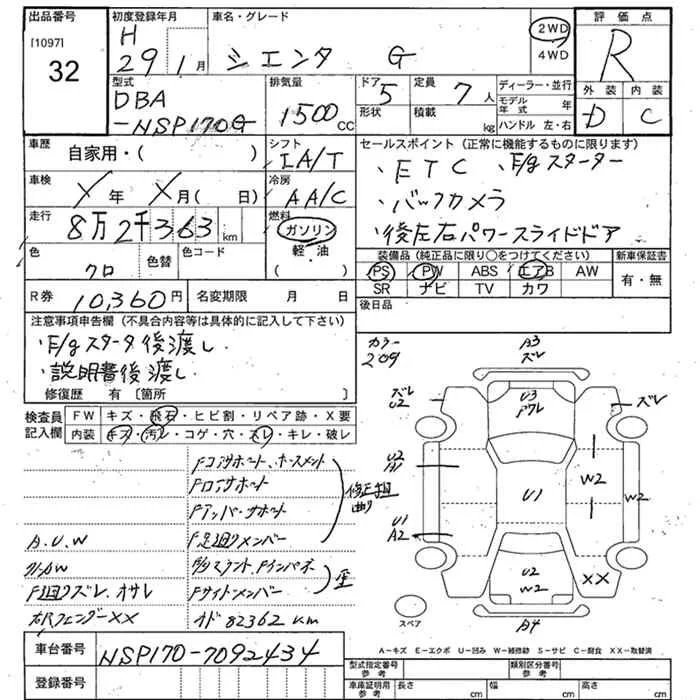 出品番号
[1097]
32
初度登録年月
H
29年1月
車名・グレード
シエンタ G
2WD
4WD
評価点
R
外装 内装
D C
型式
DBA
-NSP170G
排気量
1500cc
ドア
5
形状
定員
7人
積載
kg
ディーラー・並行
モデル年式 年
ハンドル 左・右
車歴
自家用・( )
シフト
IA/T
セールスポイント(正常に機能するものに限ります)
・ETC ・E/gスターター
・バックカメラ
・後左右パワースライドドア
車検
X年 X月( 日)
冷房
AA/C
走行
8万2千363km
燃料
ガソリン
軽・油
( )
色
クロ
色替
色コード
装備品(純正品に限り○をつけてください)
PS PW ABS エアB AW
SR ナビ TV カワ
新車保証書
有・無
R券 10,360円
名変期限 月 日
後日品
注意事項申告欄(不具合内容等は具体的に記入して下さい)
・E/gスタータ後渡し
・説明書後渡し
修復歴 有〔箇所
カラー
209
検査員
記入欄
FW キズ・飛石・ヒビ割・リペア跡・X要
内装 キズ・汚レ・コゲ・穴・スレ・キレ・破レ
Fコアサポート、ホースメント
Fロアサポート
Fアッパーサポート
F足廻りメンバー
修正
曲り
A.U.W
Fサイドメンバー
歪
F廻りズレ、オサレ
右FフェンダーXX
メーター 82362km
A3
ズレ
ズレ
U2
ズレ
U3
U2
A1
U1
W2
W2
U1
A2
U2
W2
XX
スペア
A4
A-キズ E-エクボ U-凹み W-補修跡 S-サビ C-腐食 XX-取替済
車台番号 NSP170-7092434
登録番号
型式指定番号
参考
類別区分番号
参考
車庫証明用
参考
長さ cm
幅 cm
高さ cm